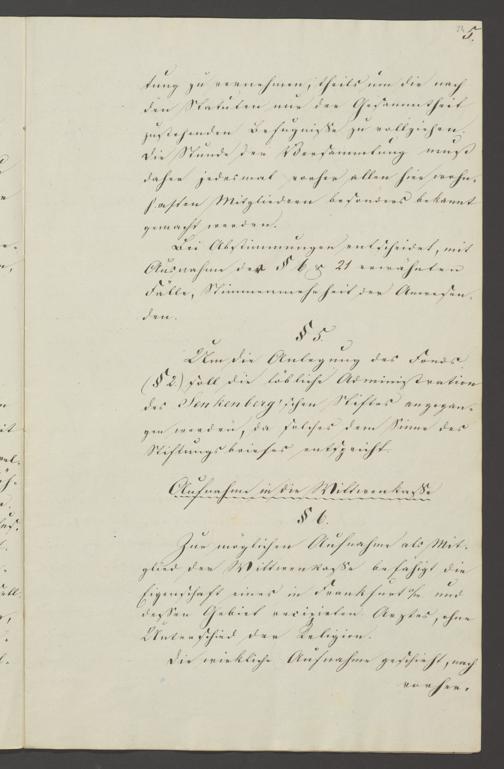 5.
tung zu vernehmen, theils um die nach
den Statuten nur der Gesammtheit
zustehenden Befugnisse zu vollziehen.
Die Stunde der Versammlung muß
daher jedesmal vorher allen hier wohn-
haften Mitgliedern besonders bekannt
gemacht werden.
Bei Abstimmungen entscheidet, mit
Ausnahme der § 6 & 21 erwähnten
Fälle, Stimmenmehrheit der Anwesen-
den.
§ 5.
Um die Anlegung des Fonds
(§ 2.) soll die löbliche Administration
des Senkenberg'schen Stiftes angegan-
gen werden, da solches dem Sinne des
Stiftungsbriefes entspricht.
Aufnahme in die Wittwenkasse
§ 6.
Zur möglichen Aufnahme als Mit-
glied der Wittwenkasse befähigt die
Eigenschaft eines in Frankfurt a/m und
dessen Gebiet recipirten Arztes, ohne
Unterschied der Religion.
Die wirkliche Aufnahme geschieht, nach
vorher-